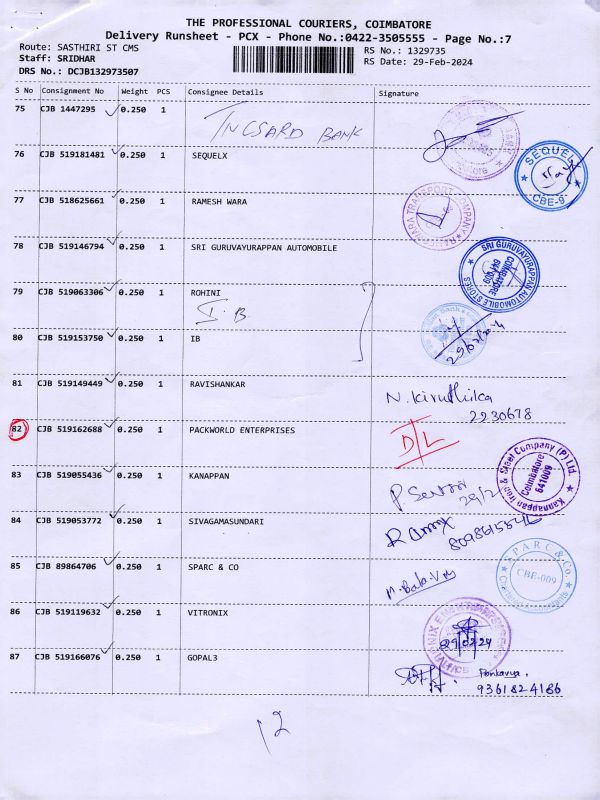 THE PROFESSIONAL COURIERS, COIMBATORE
Delivery Runsheet - PCX - Phone No.:0422-3505555 - Page No.:7
Route: SASTHIRI ST CMS
RS No.: 1329735
Staff: SRIDHAR
RS Date: 29-Feb-2024
DRS No.: DCJB132973507
S No Consignment No Weight PCS Consignee Details Signature
75 CJB 1447295 0.250 1
BANK
76 CJB 519181481 0.250 1 SEQUELX
SEQUEL
CBE-9
77 CJB 518625661 0.250 1 RAMESH WARA
TRANSPORT COMPANY
78 CJB 519146794 0.250 1 SRI GURUVAYURAPPAN AUTOMOBILE
SRI GURUVAYURAPPAN AUTOMOBILE STORES
COIMBATORE
641 009
79 CJB 519063306 0.250 1 ROHINI
I.B
80 CJB 519153750 0.250 1 IB
29/02/24
81 CJB 519149449 0.250 1 RAVISHANKAR
N. Kiruthika
2230678
82 CJB 519162688 0.250 1 PACKWORLD ENTERPRISES
D/L
83 CJB 519055436 0.250 1 KANAPPAN
Kanappan Iron & Steel Company (P) Ltd.
Coimbatore
641009
84 CJB 519053772 0.250 1 SIVAGAMASUNDARI
85 CJB 89864706 0.250 1 SPARC & CO
SPARC & Co.
CBE-009
86 CJB 519119632 0.250 1 VITRONIX
29.02.24
87 CJB 519166076 0.250 1 GOPAL3
Ponkavya.
9361824186
12